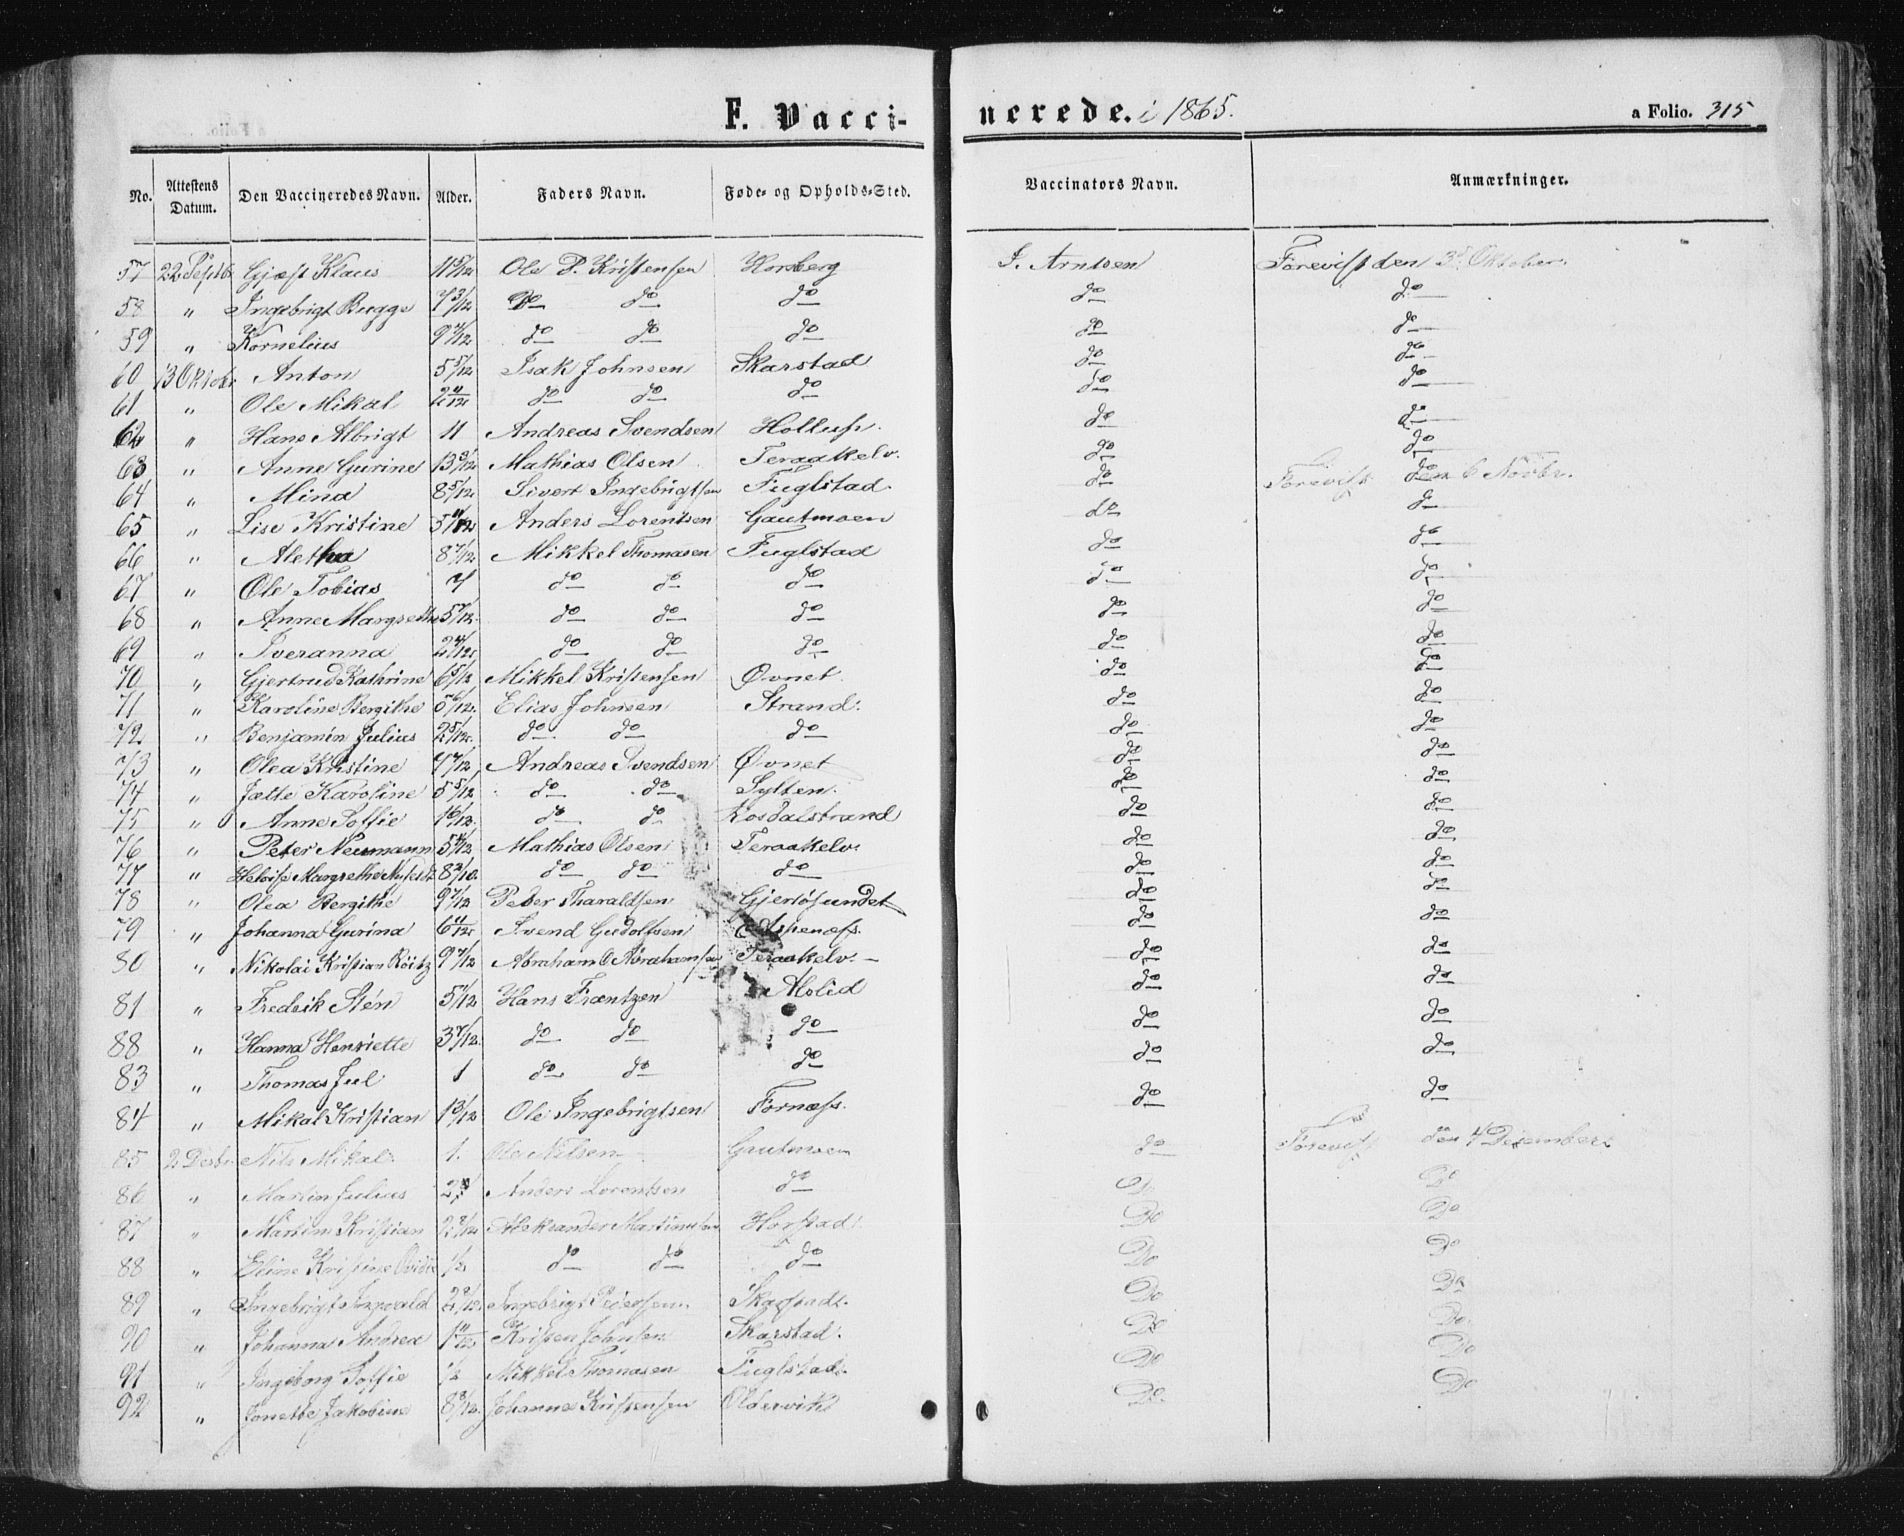 F. Vaccinerede. i 1865. a Folio. 315
No. Attestens Datum. Den Vaccineredes Navn. Alder. Faders Navn. Føde- og Opholds-Sted. Vaccinators Navn. Anmærkninger.
57 22 Septb. Gjæst Klaus 11 5/12 Ole P. Kristensen Horsberg J. Arntsen Forevist den 3 Oktober.
58 " Ingebrigt Bugge 7 3/12 do do do do do
59 " Kornelius 9 7/12 do do do do do
60 13 Oktob. Anton 5 5/12 Isak Johnsen Skarstad do do
61 " Ole Mikal 2 11/12 do do do do do
62 " Hans Albrigt 11 Andreas Svendsen do do
63 " Anne Gurine 13 3/12 Mathias Olsen Teraakelv. do do
64 " Mina 8 5/12 Sivert Ingebrigtsen Fuglstad do Forevist den 6 Novbr.
65 " Lise Kristine 5 11/12 Anders Lorentsen Gautmoen do do
66 " Aletha 8 7/12 Mikkel Thomasen Fuglstad do do
67 " Ole Tobias 7 do do do do do
68 " Anne Margrethe 5 7/12 do do do do do
69 " Iveranna do do do do do
70 " Gjertrud Kathrine 6 5/12 Mikkel Kristensen Øvnet. do do
71 " Karoline Bergithe 5 6/12 Elias Johnsen Strand. do do
72 " Benjamin Julius 2 5/12 do do do do do
73 " Olea Kristine 7 7/12 Andreas Svendsen Øvnet do do
74 " Jætte Karoline 5 5/12 do do Sylten. do do
75 " Anne Soffie do do Kosdalstrand do do
76 " Peter Neumann 5 11/12 Mathias Olsen Teraakelv. do do
77 " Heloise Margrethe do do do do do
78 " Olea Bergithe 9 7/12 Peder Tharaldsen Gjerløsundet do do
79 " Johanna Gurina 6 11/12 Svend Gudolfsen Aspenæs. do do
80 " Nikolai Kristian Röitz 9 7/12 Abraham O Abrahamsen Teraakelv. do do
81 " Fredrik Stén 5 1/12 Hans Frantzen Alolid do do
88 " Hanna Henriette 3 7/12 do do do do do
83 " Thomas Juel 1 do do do do do
84 " Mikal Kristian 1 3/12 Ole Ingebrigtsen Fornæss. do do
85 2 Desbr. Nils Mikal 1. Ole Nilsen Gautmoen do Forevist den 4 Desember.
86 " Martin Julius Anders Lorentsen do do Do
87 " Martin Kristian 2 8/12 Aleksander Martinusen Horstad. Do Do
88 " Eline Kristine 1/2 do do do Do Do
89 " Ingebrigt Ingvald Ingebrigt Pedersen Skarstad. Do Do
90 " Johanna Andrea 1 11/12 Kristen Johnsen Skarstad. Do Do
91 " Ingeborg Soffie 1/2 Mikkel Thomasen Fuglstad. Do Do
92 " Jonette Jakobine 8 8/12 Johannes Kristensen Oldervik Do. Do